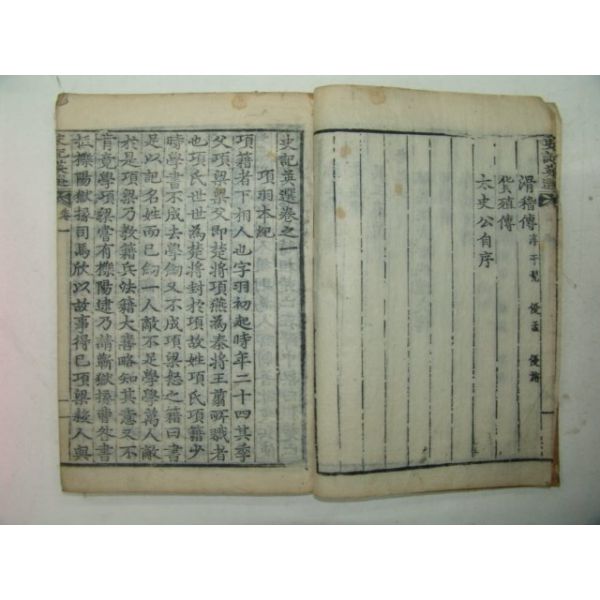 史記英選
滑稽傳 淳于髡 優孟 優旃
貨殖傳
太史公自序
史記英選卷之一
項羽本紀
項籍者下相人也字羽初起時年二十四其季
父項梁梁父即楚將項燕為秦將王翦所戮者
也項氏世世為楚將封於項故姓項氏項籍少
時學書不成去學劒又不成項梁怒之籍曰書
足以記名姓而已劒一人敵不足學學萬人敵
於是項梁乃教籍兵法籍大喜略知其意又不
肯竟學項梁嘗有櫟陽逮乃請蘄獄掾曹咎書
抵櫟陽獄掾司馬欣以故事得已項梁殺人與
史記英選 卷一 一